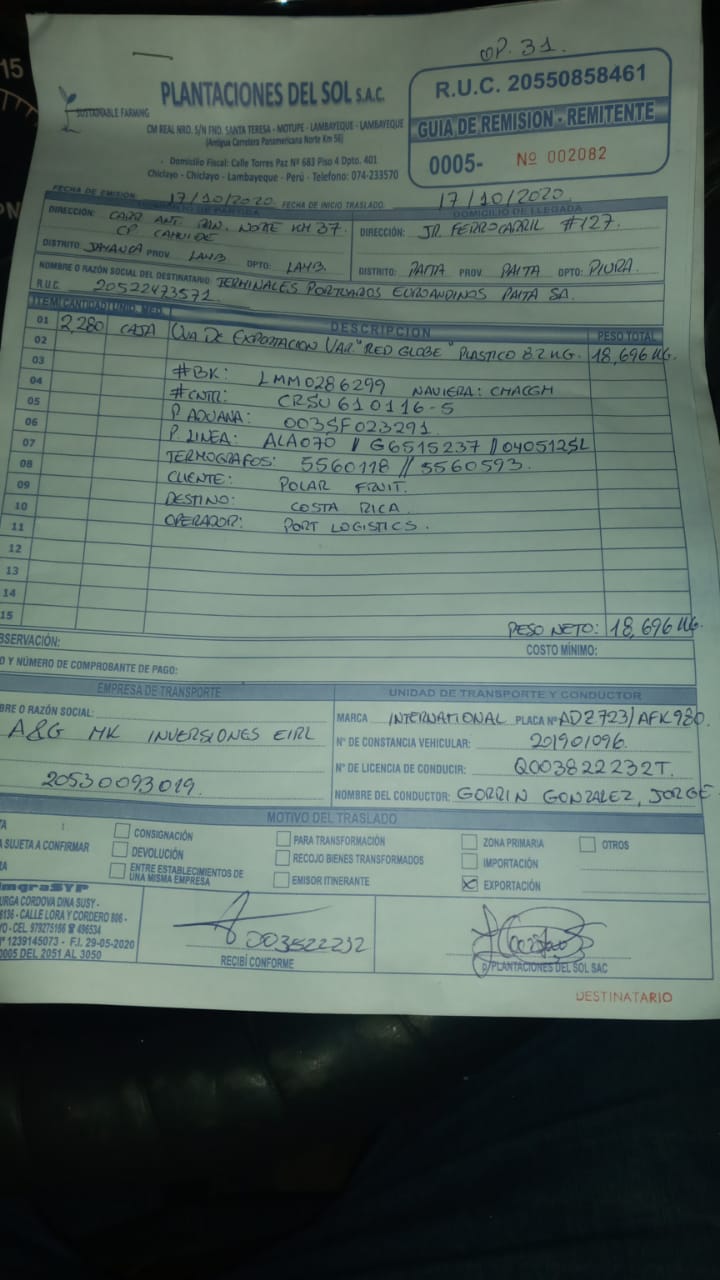 OP. 31.
PLANTACIONES DEL SOL S.A.C.
SUSTAINABLE FARMING
CM REAL NRO. S/N FND. SANTA TERESA - MOTUPE - LAMBAYEQUE - LAMBAYEQUE
(Antigua Carretera Panamericana Norte Km 56)
Domicilio Fiscal: Calle Torres Paz Nº 683 Piso 4 Dpto. 401
Chiclayo - Chiclayo - Lambayeque - Perú - Telefono: 074-233570
R.U.C. 20550858461
GUIA DE REMISION - REMITENTE
0005- Nº 002082
FECHA DE EMISIÓN: 17/10/2020 FECHA DE INICIO TRASLADO: 17/10/2020
DOMICILIO DE PARTIDA
DIRECCIÓN: CARR ANT. PAN. NORTE KM 37.
CP CAHUIDE
DISTRITO: JAYANCA PROV LAMB. DPTO: LAMB.
DOMICILIO DE LLEGADA
DIRECCIÓN: JR. FERROCARRIL #127.
DISTRITO: PAITA PROV. PAITA DPTO: PIURA.
NOMBRE O RAZÓN SOCIAL DEL DESTINATARIO: TERMINALES PORTUARIOS EUROANDINOS PAITA SA.
R.U.C. 20522473571
ITEM CANTIDAD UNID. MED. DESCRIPCION PESO TOTAL
01 2,280 CAJA UVA DE EXPORTACION VAR "RED GLOBE" PLASTICO 8.2 KG. 18,696 KG.
02
03 #BK: LMM0286299 NAVIERA: CMACGM
04 #CNTR: CRSU 610116-5
05 P ADUANA: 0035F023291
06 P. LINEA: ALA070 // G6515237 // 040512SL
07 TERMOGRAFOS: 5560118 // 5560593.
08 CLIENTE: POLAR FRUIT.
09 DESTINO: COSTA RICA
10 OPERADOR: PORT LOGISTICS.
11
12
13
14
15
PESO NETO: 18,696 KG.
BSERVACIÓN:
COSTO MÍNIMO:
O Y NÚMERO DE COMPROBANTE DE PAGO:
EMPRESA DE TRANSPORTE
BRE O RAZÓN SOCIAL:
A&G MK INVERSIONES EIRL
20530093019.
UNIDAD DE TRANSPORTE Y CONDUCTOR
MARCA INTERNATIONAL PLACA Nº ADZ723/AFK980.
Nº DE CONSTANCIA VEHICULAR: 201901096.
Nº DE LICENCIA DE CONDUCIR: Q003822232T.
NOMBRE DEL CONDUCTOR: GORRIN GONZALEZ, JORGE
MOTIVO DEL TRASLADO
TA
A SUJETA A CONFIRMAR
RA
CONSIGNACIÓN
DEVOLUCIÓN
ENTRE ESTABLECIMIENTOS DE
UNA MISMA EMPRESA
PARA TRANSFORMACIÓN
RECOJO BIENES TRANSFORMADOS
EMISOR ITINERANTE
ZONA PRIMARIA
IMPORTACIÓN
EXPORTACIÓN
OTROS
ImgraSYP
URGA CORDOVA DINA SUSY -
6136 - CALLE LORA Y CORDERO 806 -
YO - CEL. 979275166 ☎ 496534
Nº 1239145073 - F.I. 29-05-2020
0005 DEL 2051 AL 3050
003822232
RECIBÍ CONFORME
p/PLANTACIONES DEL SOL SAC
DESTINATARIO